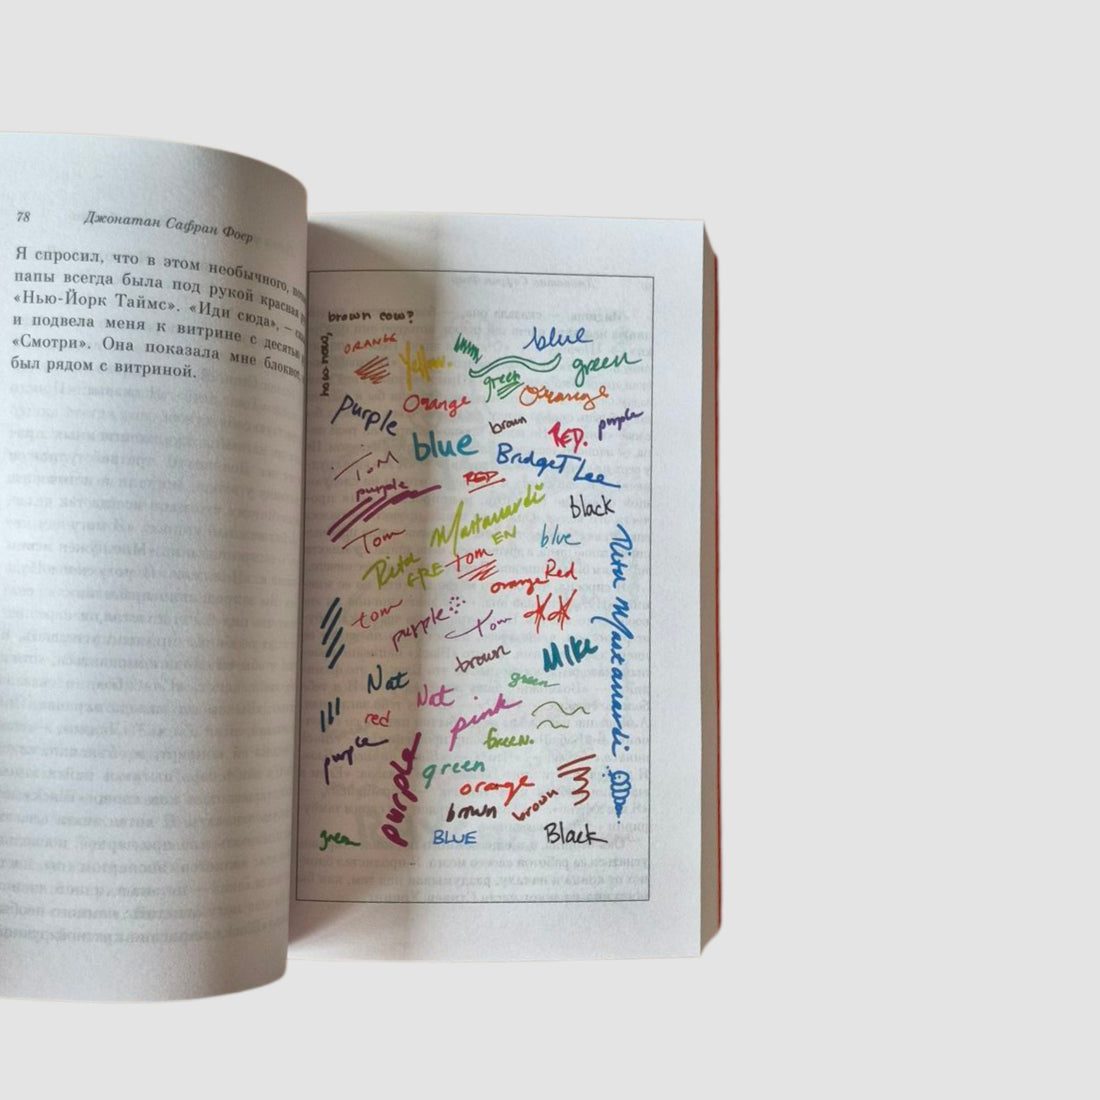 78
Джонатан Сафран Фоер
Я спросил, что в этом необычного,
папы всегда была под рукой красная
«Нью-Йорк Таймс». «Иди сюда», —
и подвела меня к витрине с
«Смотри». Она показала мне
был рядом с витриной.
how now,
brown cow?
ORANGE
Yellow.
blue
green
green
Orange
Orange
purple
brown
purple
blue
RED.
Bridget Lee
Tom
purple
RED
black
Rita Mastanardi
Tom
EN
blue
ERE
tom
orange
Red
Rita Mastanardi
tom
purple
Tom
brown
Mike
Nat
green
Nat
red
pink
purple
Green.
purple
green
orange
brown
brown
green
BLUE
Black